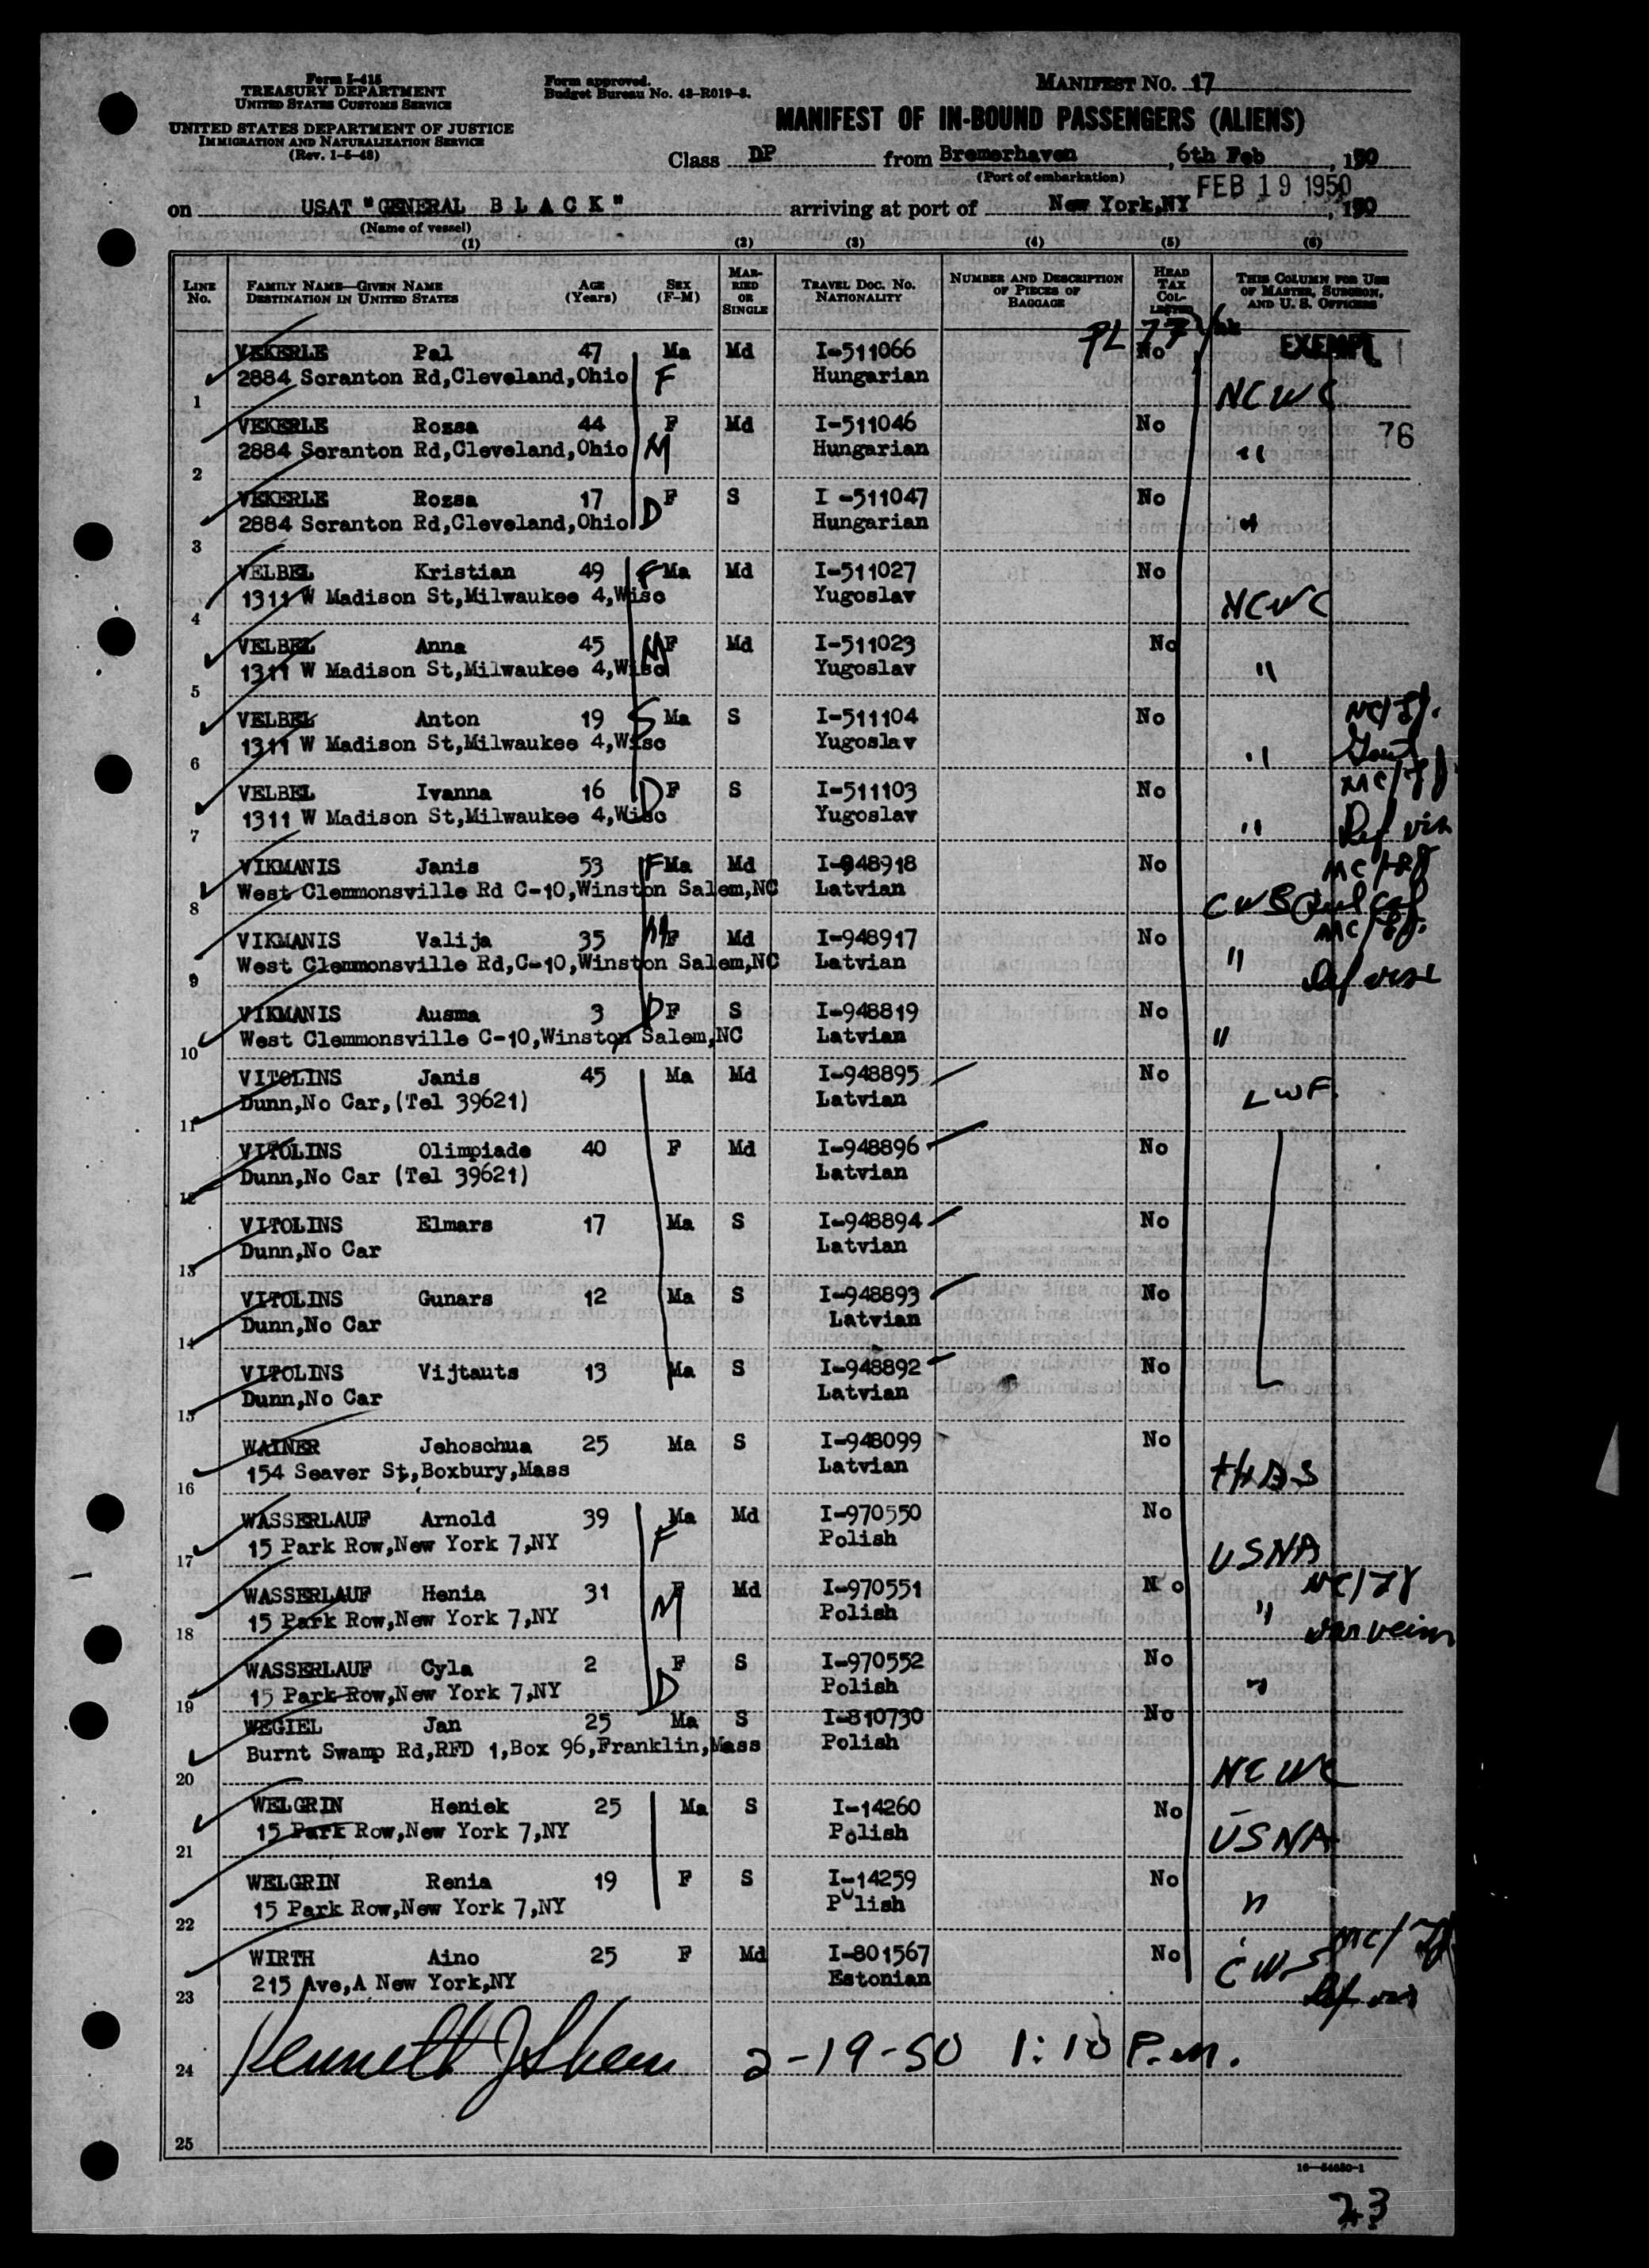 Form I-415
TREASURY DEPARTMENT
UNITED STATES CUSTOMS SERVICE
UNITED STATES DEPARTMENT OF JUSTICE
IMMIGRATION AND NATURALIZATION SERVICE
(Rev. 1-5-48)
Form approved.
Budget Bureau No. 43-R019-3.
MANIFEST NO. 17
MANIFEST OF IN-BOUND PASSENGERS (ALIENS)
Class DP from Bremerhaven, 6th Feb, 1950
(Port of embarkation)
FEB 19 1950
on USAT "GENERAL BLACK" arriving at port of New York,NY, 1950
(Name of vessel)
(1) (2) (3) (4) (5) (6)
LINE No. FAMILY NAME—GIVEN NAME DESTINATION IN UNITED STATES AGE (Years) SEX (F-M) MARRIED OR SINGLE TRAVEL DOC. NO. NATIONALITY NUMBER AND DESCRIPTION OF PIECES OF BAGGAGE HEAD TAX COLLECTED THIS COLUMN FOR USE OF MASTER, SURGEON, AND U. S. OFFICERS
PL 774
VEKERLE Pal 47 Ma Md I-511066 No EXEMPT
1 2884 Scranton Rd,Cleveland,Ohio F Hungarian NCWC
VEKERLE Rozsa 44 F Md I-511046 No 76
2 2884 Scranton Rd,Cleveland,Ohio M Hungarian "
VEKERLE Rozsa 17 F S I -511047 No
3 2884 Scranton Rd,Cleveland,Ohio D Hungarian "
VELBEL Kristian 49 F Ma Md I-511027 No
4 1311 W Madison St,Milwaukee 4,Wisc Yugoslav NCWC
VELBEL Anna 45 M F Md I-511023 No
5 1311 W Madison St,Milwaukee 4,Wisc Yugoslav "
VELBEL Anton 19 S Ma S I-511104 No
6 1311 W Madison St,Milwaukee 4,Wisc Yugoslav "
VELBEL Ivanna 16 D F S I-511103 No
7 1311 W Madison St,Milwaukee 4,Wisc Yugoslav " Def vis
VIKMANIS Janis 53 F Ma Md I-948918 No
8 West Clemmonsville Rd C-10,Winston Salem,NC Latvian CWS
VIKMANIS Valija 35 M F Md I-948917 No
9 West Clemmonsville Rd,C-10,Winston Salem,NC Latvian " Def vis
VIKMANIS Ausma 3 D F S I-948819 No
10 West Clemmonsville C-10,Winston Salem,NC Latvian "
VITOLINS Janis 45 Ma Md I-948895 No
11 Dunn,No Car,(Tel 39621) Latvian LWF
VITOLINS Olimpiade 40 F Md I-948896 No
12 Dunn,No Car (Tel 39621) Latvian
VITOLINS Elmars 17 Ma S I-948894 No
13 Dunn,No Car Latvian
VITOLINS Gunars 12 Ma S I-948893 No
14 Dunn,No Car Latvian
VITOLINS Vijtauts 13 Ma S I-948892 No
15 Dunn,No Car Latvian
WAINER Jehoschua 25 Ma S I-948099 No
16 154 Seaver St,Boxbury,Mass Latvian HIAS
WASSERLAUF Arnold 39 Ma Md I-970550 No
17 15 Park Row,New York 7,NY F Polish USNA
WASSERLAUF Henia 31 F Md I-970551 No
18 15 Park Row,New York 7,NY M Polish "
WASSERLAUF Cyla 2 F S I-970552 No
19 15 Park Row,New York 7,NY D Polish "
WEGIEL Jan 25 Ma S I-810730 No
20 Burnt Swamp Rd,RFD 1,Box 96,Franklin,Mass Polish NCWC
WELGRIN Heniek 25 Ma S I-14260 No
21 15 Park Row,New York 7,NY Polish USNA
WELGRIN Renia 19 F S I-14259 No
22 15 Park Row,New York 7,NY Polish "
WIRTH Aino 25 F Md I-801567 No
23 215 Ave,A New York,NY Estonian CWS Def vis
24 2-19-50 1:10 P.M.
25
16—54680-1
23